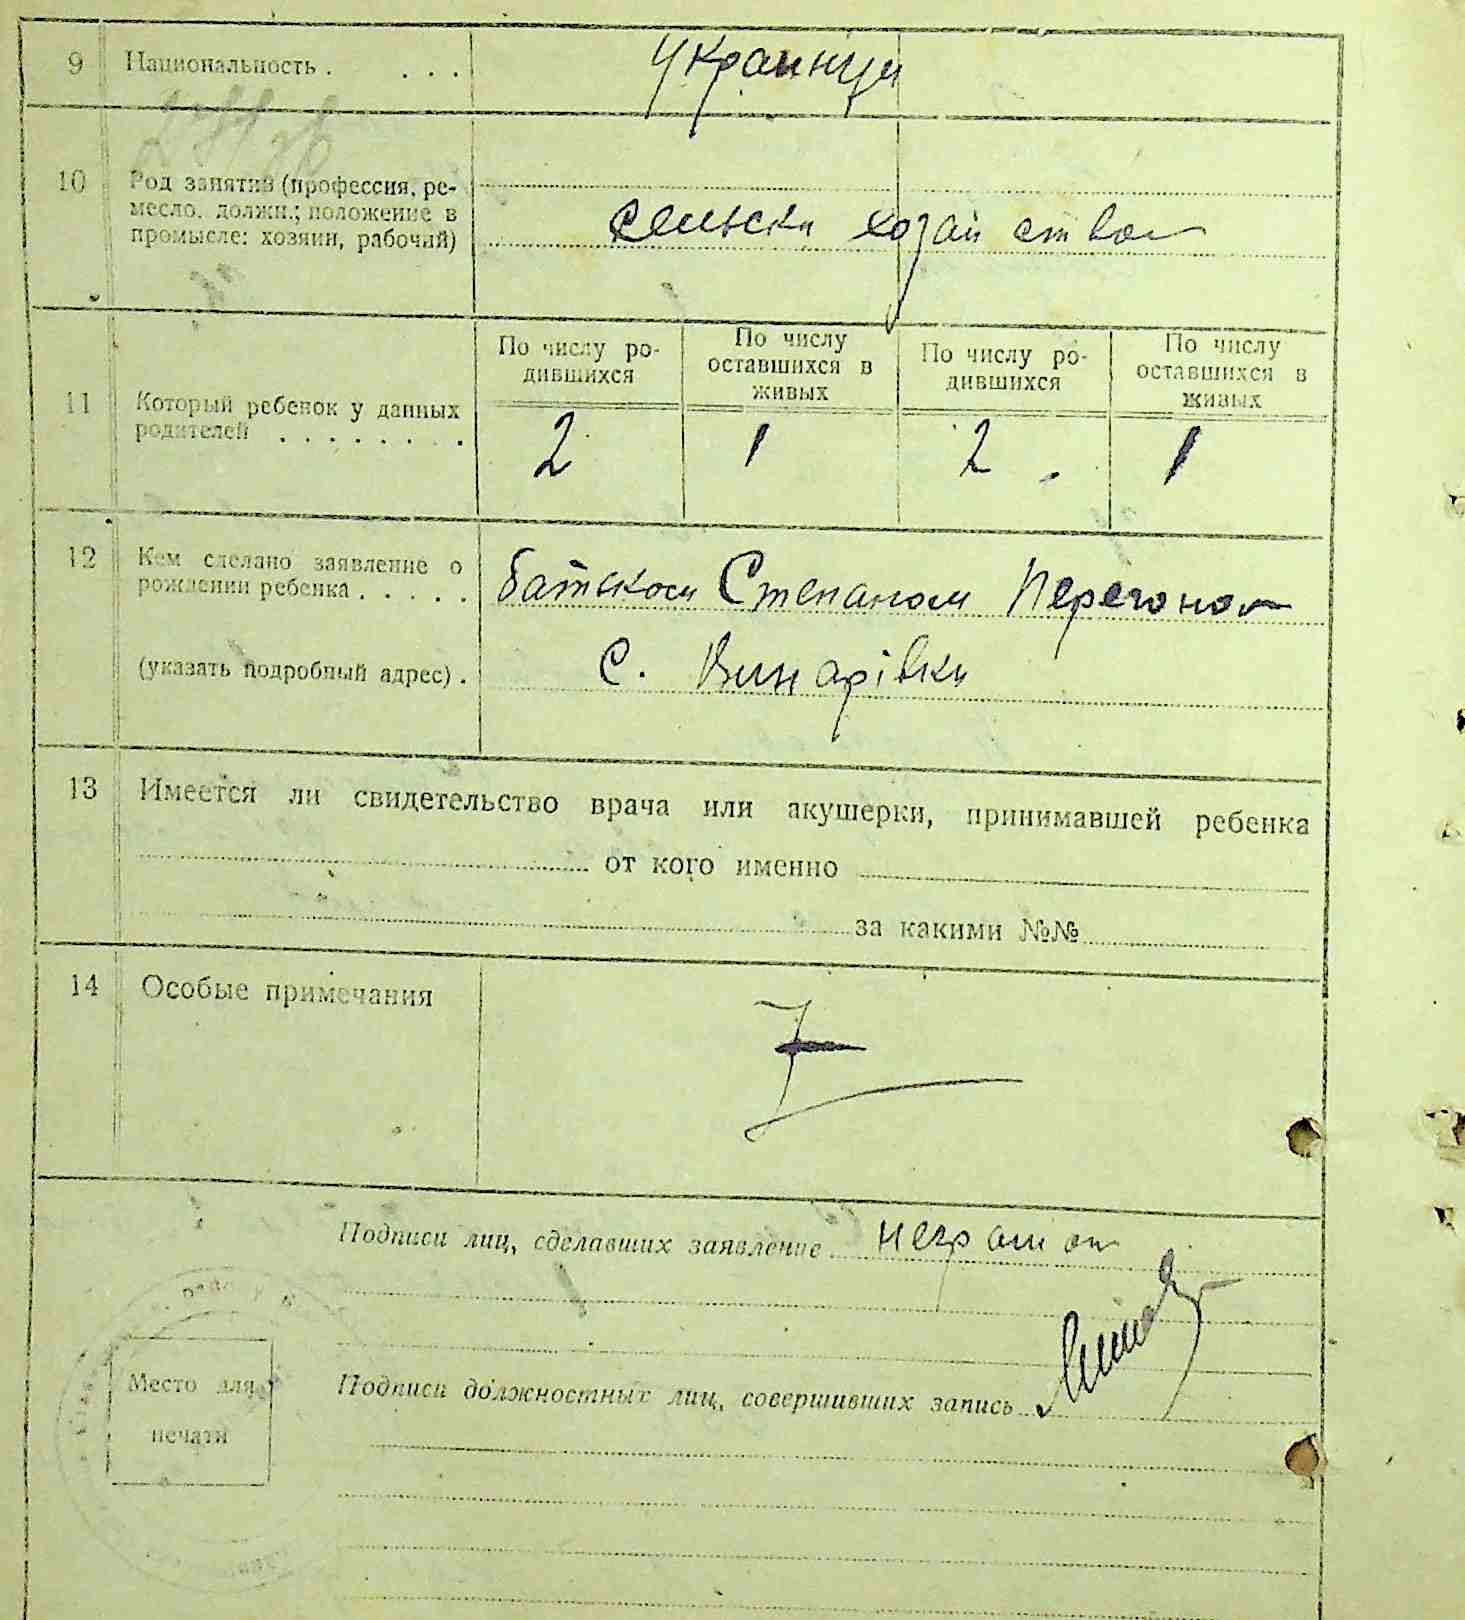 9 Национальность . . . . украинци
10 Род занятий (профессия, ре-
месло, должн.; положение в
промысле: хозяин, рабочий)
сельски хозяйством
11 Который ребенок у данных
родителей . . . . . . . .
По числу ро-
дившихся
По числу
оставшихся в
живых
По числу ро-
дившихся
По числу
оставшихся в
живых
2 1 2 1
12 Кем сделано заявление о
рождении ребенка . . . . .
батьком Степаном Перегоном
(указать подробный адрес) . с. Винарівки
13 Имеется ли свидетельство врача или акушерки, принимавшей ребенка
от кого именно
за какими №№
14 Особые примечания
Подписи лиц, сделавших заявление неграмот
Место для
печати
Подписи должностных лиц, совершивших запись